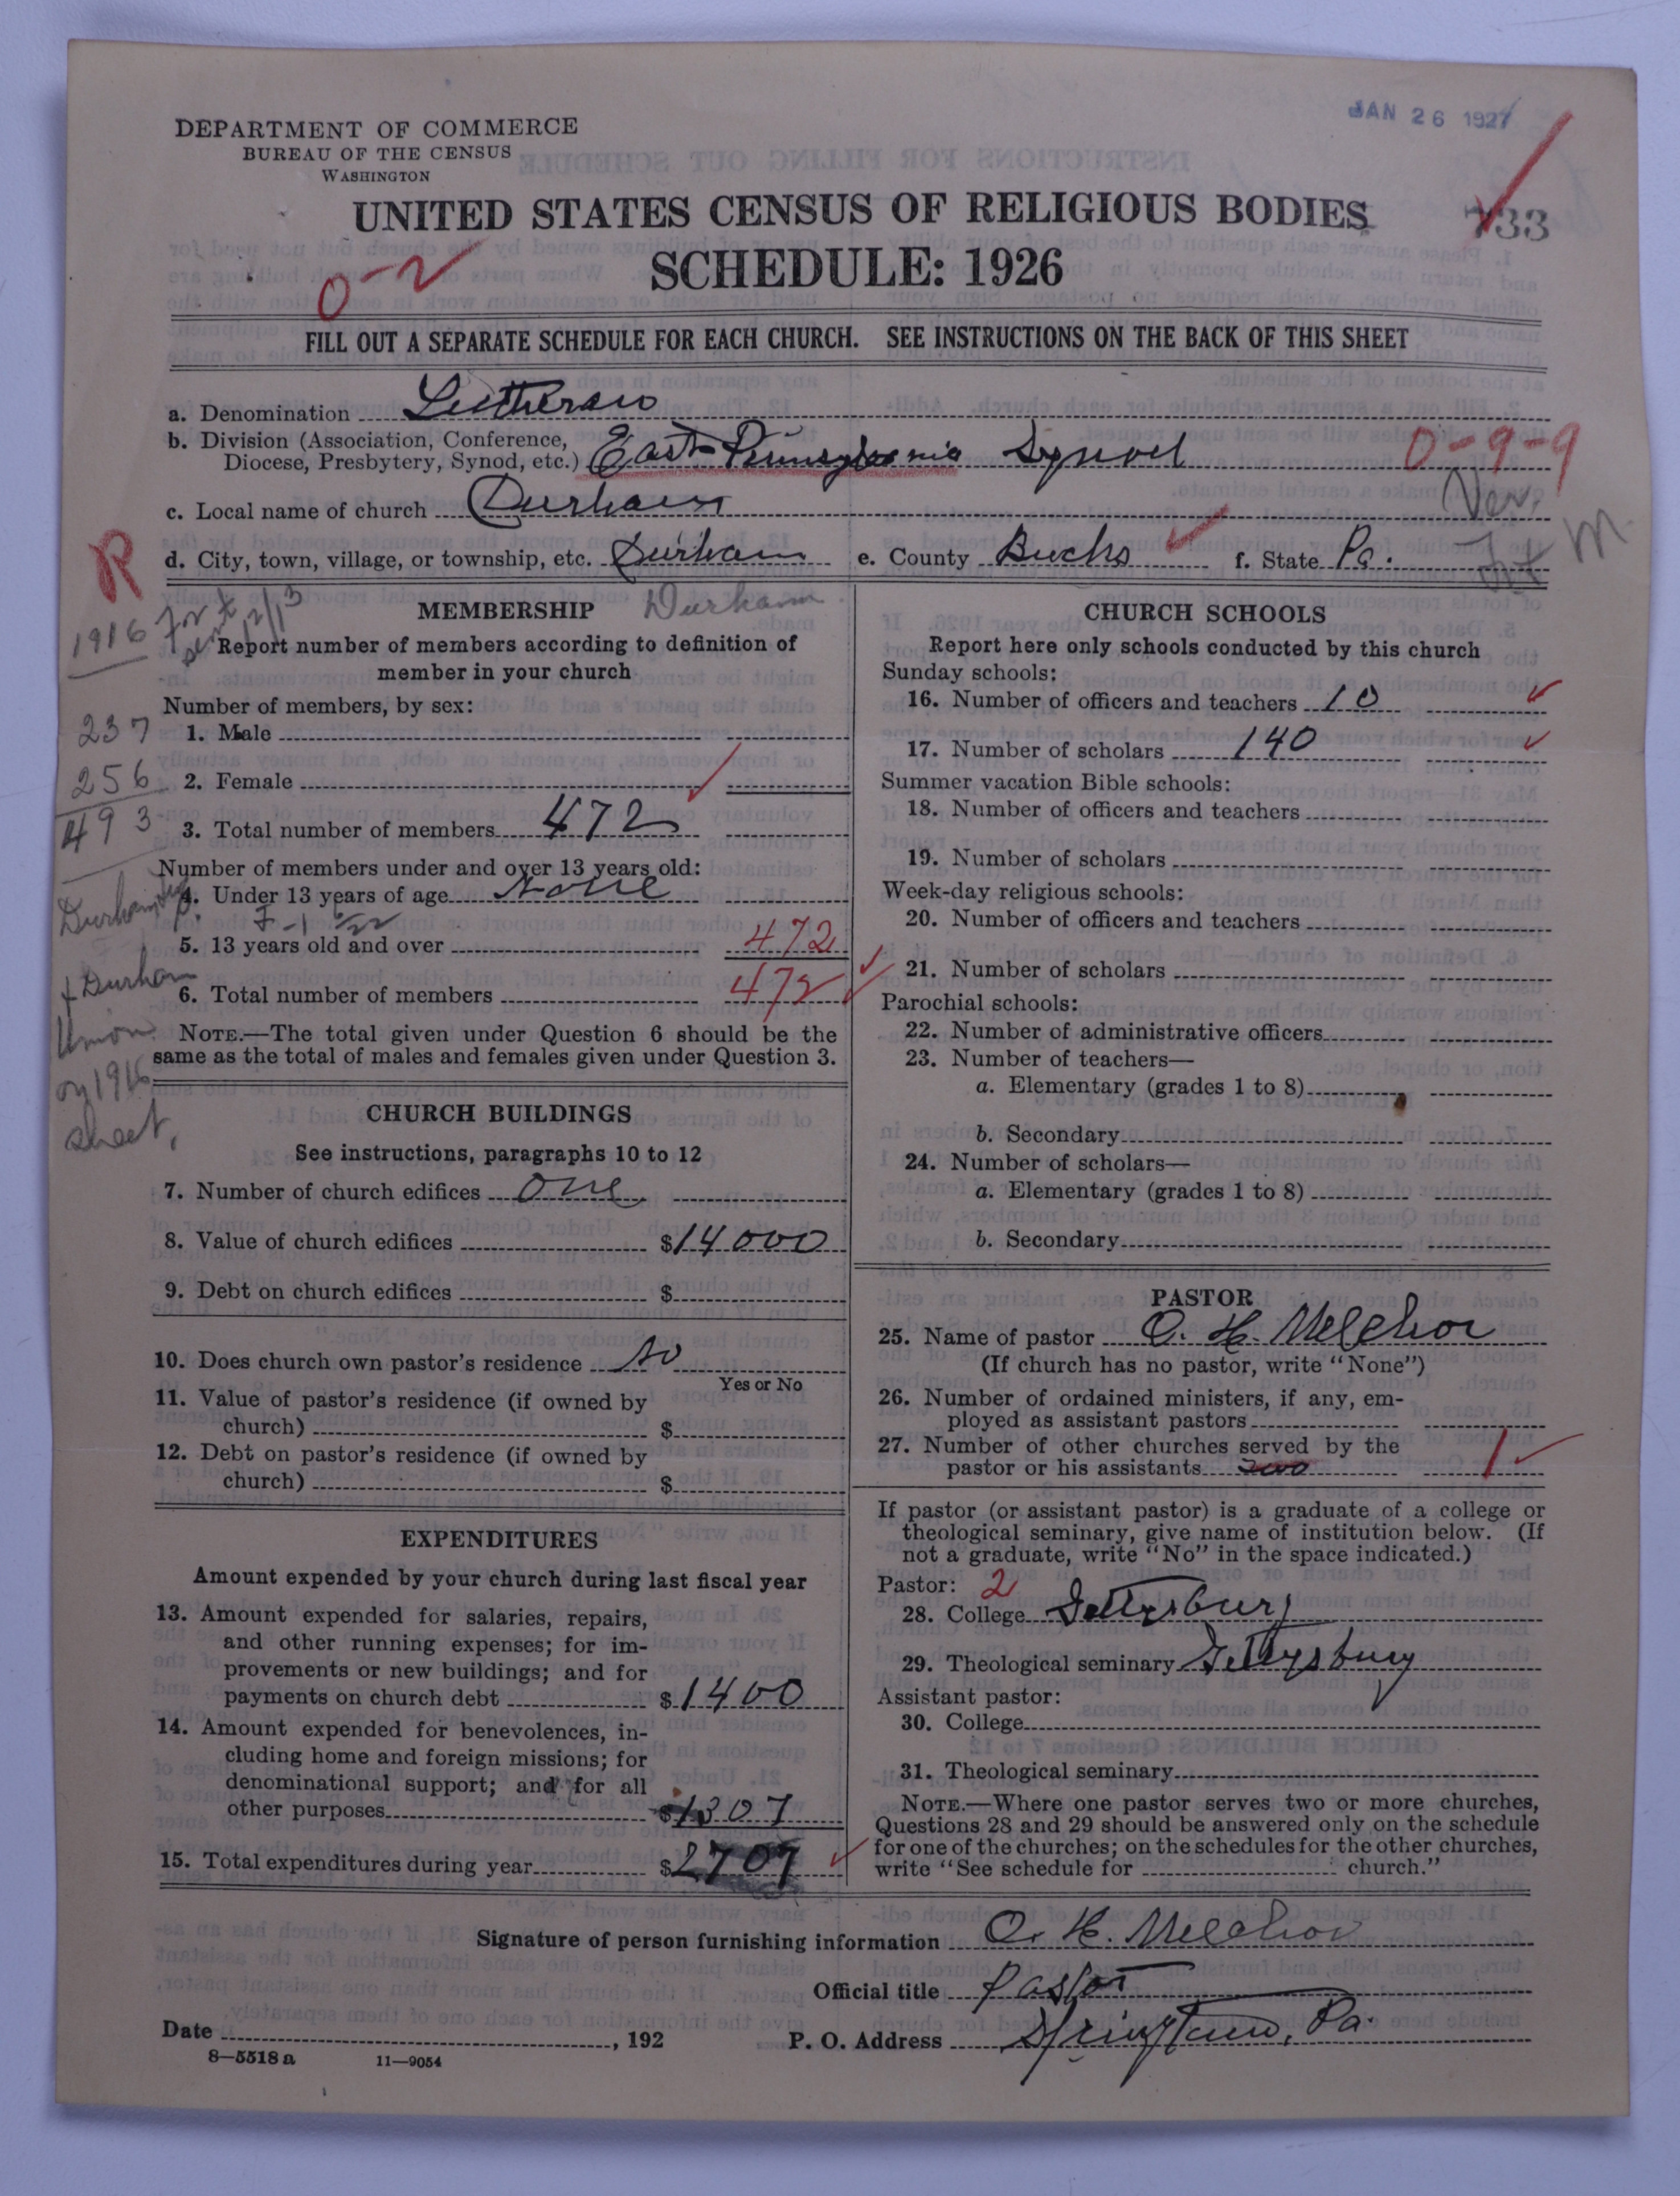 JAN 26 1927
DEPARTMENT OF COMMERCE
BUREAU OF THE CENSUS
WASHINGTON
UNITED STATES CENSUS OF RELIGIOUS BODIES
733
SCHEDULE: 1926
0-2
FILL OUT A SEPARATE SCHEDULE FOR EACH CHURCH. SEE INSTRUCTIONS ON THE BACK OF THIS SHEET
a. Denomination Lutheran
b. Division (Association, Conference,
Diocese, Presbytery, Synod, etc.) East Pennsylvania Synod 0-9-9
Ver.
c. Local name of church Durham
R
d. City, town, village, or township, etc. Durham e. County Bucks f. State Pa.
M
MEMBERSHIP Durham
1916
Report number of members according to definition of
member in your church
Number of members, by sex:
237
1. Male
256
2. Female
493
3. Total number of members 472
Number of members under and over 13 years old:
4. Under 13 years of age None
Durham
5. 13 years old and over 472
+ Durham
6. Total number of members 472
Union
on 1916
sheet.
NOTE.—The total given under Question 6 should be the
same as the total of males and females given under Question 3.
CHURCH BUILDINGS
See instructions, paragraphs 10 to 12
7. Number of church edifices One
8. Value of church edifices $14000
9. Debt on church edifices $
10. Does church own pastor's residence No
Yes or No
11. Value of pastor's residence (if owned by
church) $
12. Debt on pastor's residence (if owned by
church) $
EXPENDITURES
Amount expended by your church during last fiscal year
13. Amount expended for salaries, repairs,
and other running expenses; for im-
provements or new buildings; and for
payments on church debt $1400
14. Amount expended for benevolences, in-
cluding home and foreign missions; for
denominational support; and for all
other purposes $1307
15. Total expenditures during year $2707
CHURCH SCHOOLS
Report here only schools conducted by this church
Sunday schools:
16. Number of officers and teachers 10
17. Number of scholars 140
Summer vacation Bible schools:
18. Number of officers and teachers
19. Number of scholars
Week-day religious schools:
20. Number of officers and teachers
21. Number of scholars
Parochial schools:
22. Number of administrative officers
23. Number of teachers—
a. Elementary (grades 1 to 8)
b. Secondary
24. Number of scholars—
a. Elementary (grades 1 to 8)
b. Secondary
PASTOR
25. Name of pastor O. H. Melchor
(If church has no pastor, write "None")
26. Number of ordained ministers, if any, em-
ployed as assistant pastors
27. Number of other churches served by the
pastor or his assistants 1
If pastor (or assistant pastor) is a graduate of a college or
theological seminary, give name of institution below. (If
not a graduate, write "No" in the space indicated.)
Pastor: 2
28. College Gettysburg
29. Theological seminary Gettysburg
Assistant pastor:
30. College
31. Theological seminary
NOTE.—Where one pastor serves two or more churches,
Questions 28 and 29 should be answered only on the schedule
for one of the churches; on the schedules for the other churches,
write "See schedule for church."
Signature of person furnishing information O. H. Melchor
Official title Pastor
Date , 192
P. O. Address Springtown, Pa.
8—5518 a 11—9054